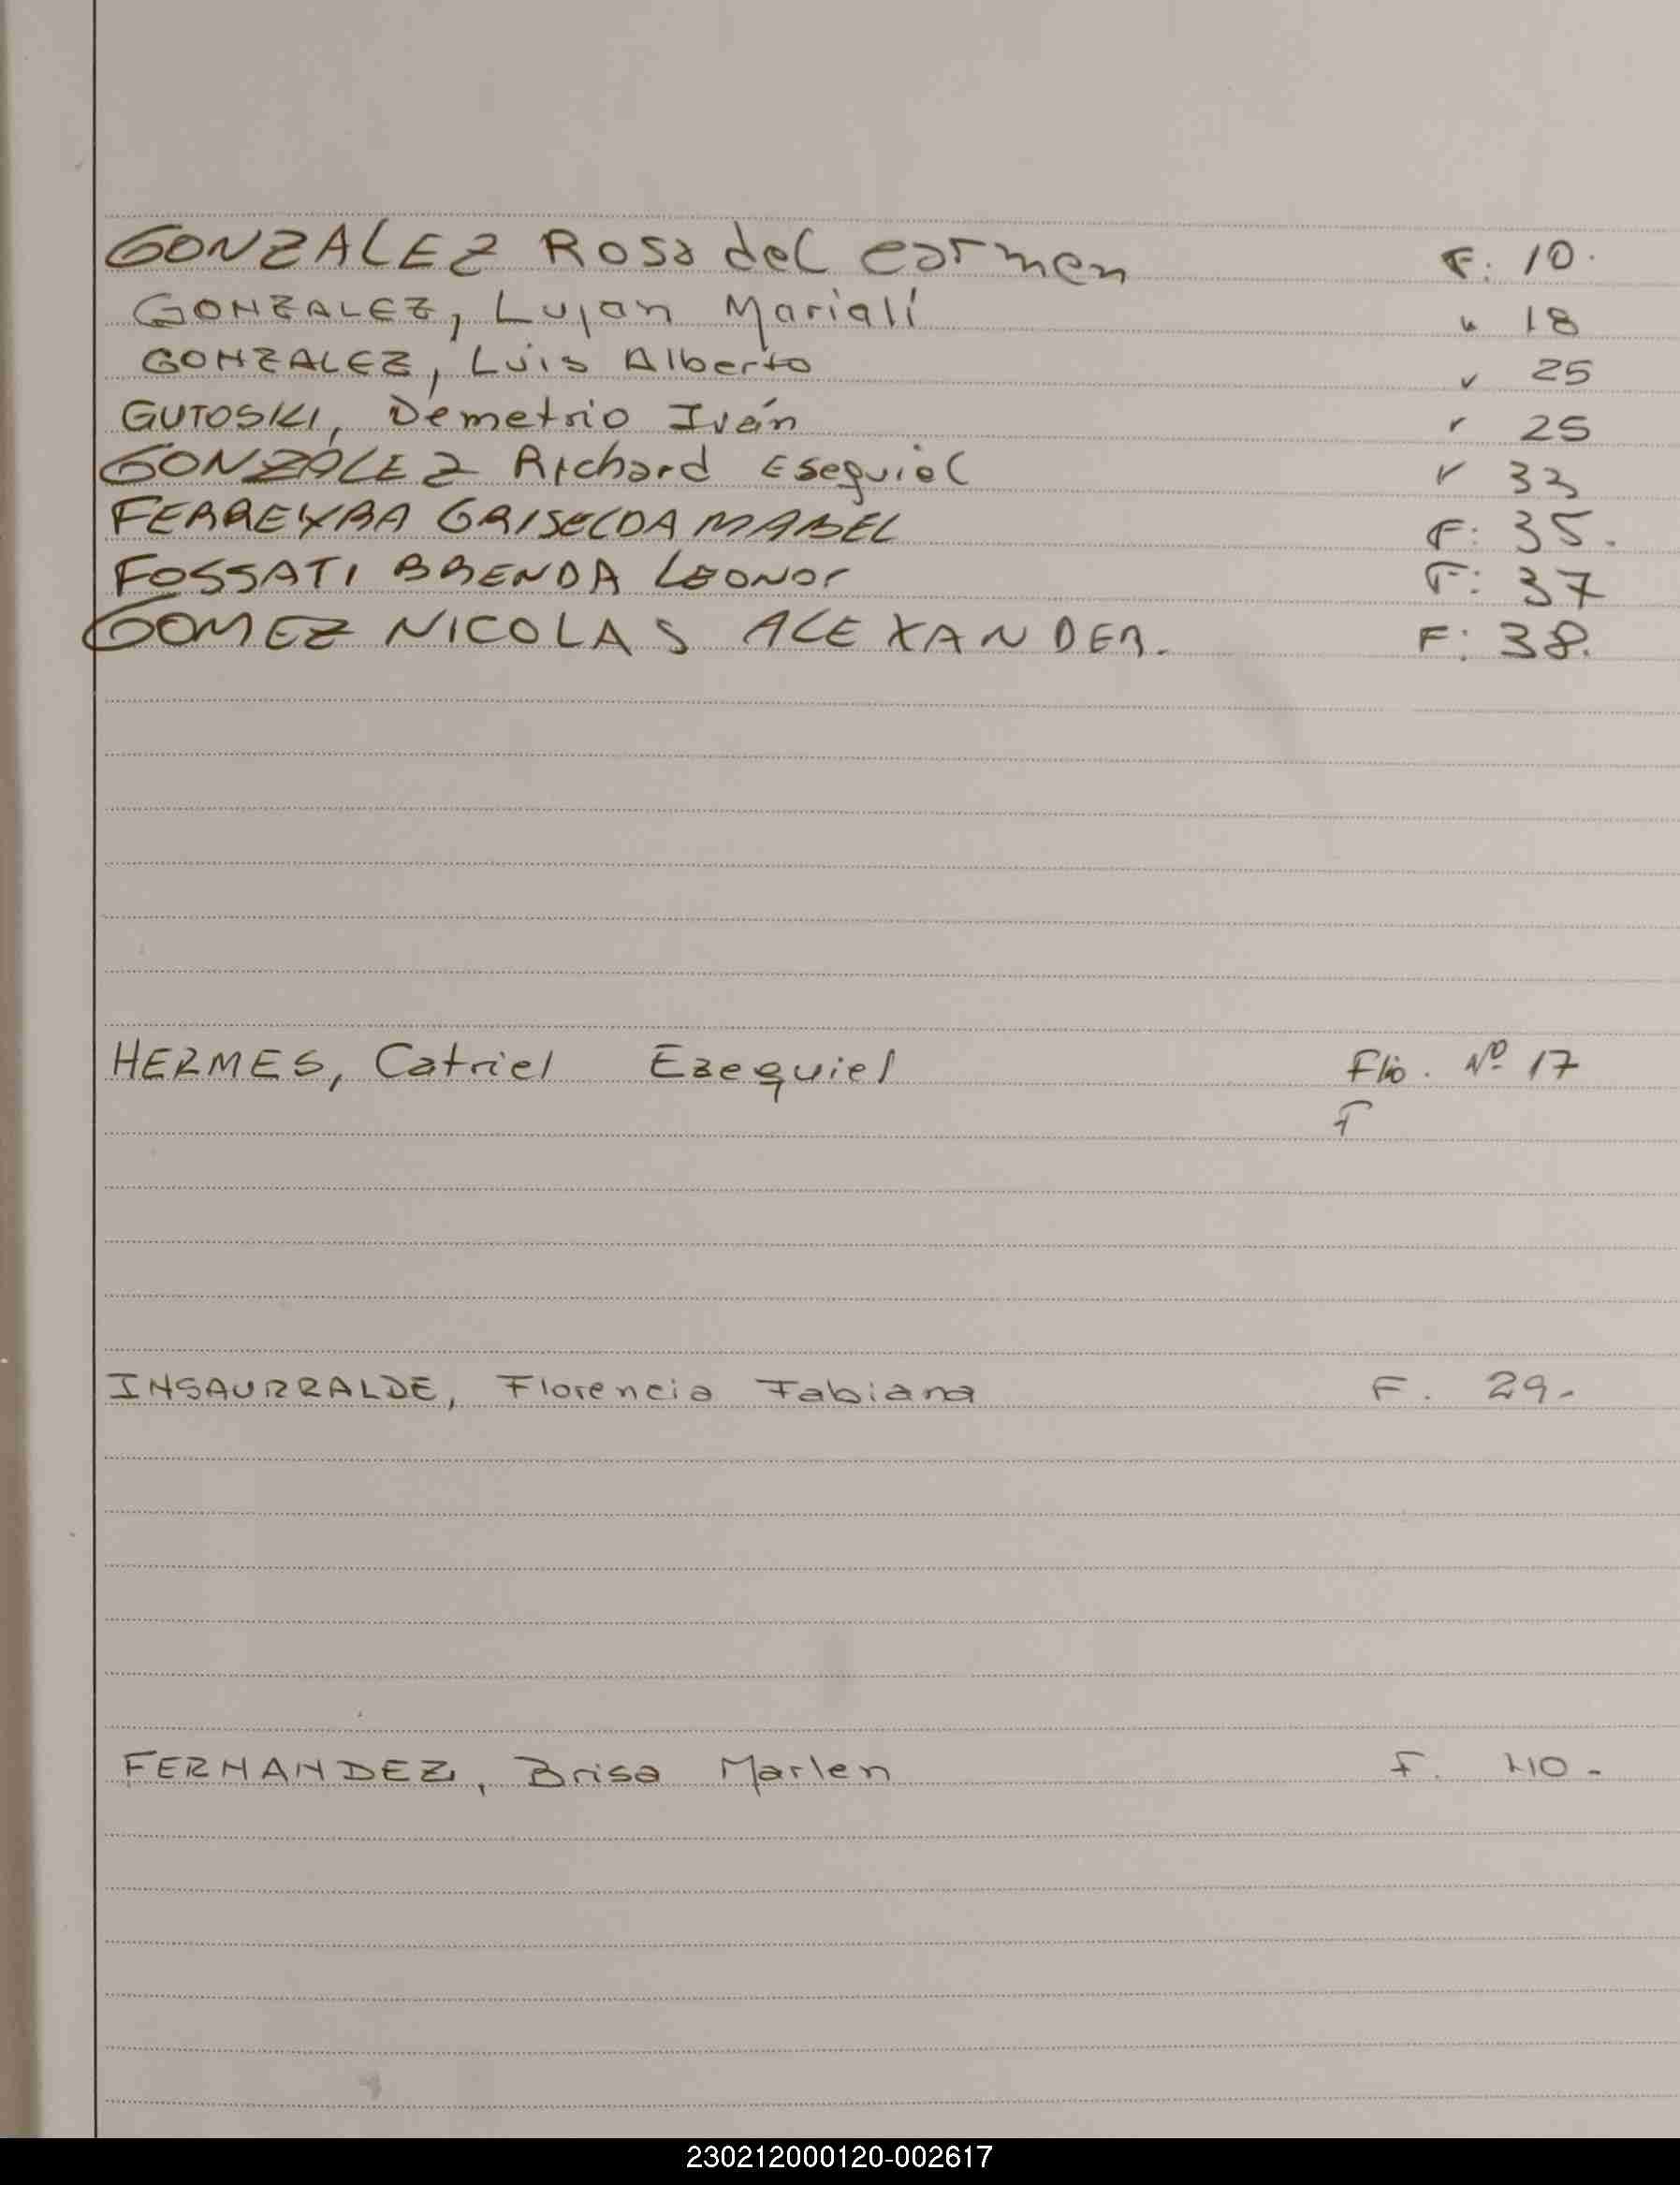 GONZALEZ Rosa del Carmen F. 10.
GONZALEZ, Lujan Marialí " 18
GONZALEZ, Luis Alberto " 25
GUTOSKI, Demetrio Iván " 25
GONZALEZ Richard Esequiel " 33
FERREYRA GRISELDA MABEL F: 35.
FOSSATI BRENDA LEONOr F: 37
GOMEZ NICOLAS ALEXANDER. F: 38.
HERMES, Catriel Ezequiel Flio. Nº 17
F
INSAURRALDE, Florencia Fabiana F. 29.
FERNANDEZ, Brisa Marlen F. 40.
230212000120-002617